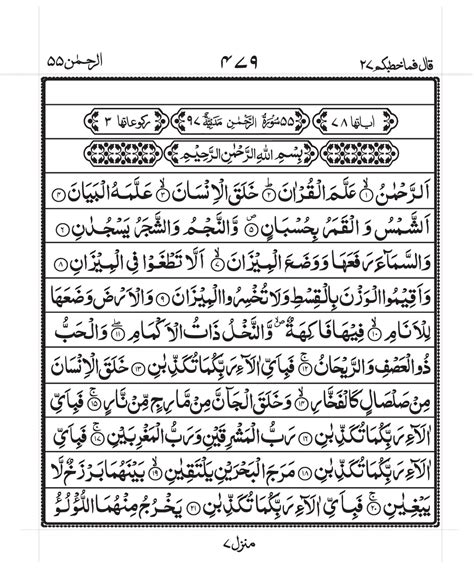 قال فماخطبكم ۲۷ ۴۷۹ الرحمٰن ۵۵
اٰیاتها ۷۸ ۵۵ سُوْرَةُ الرَّحْمٰنِ مَدَنِیَّةٌ ۹۷ رکوعاتها ۳
بِسْمِ اللّٰهِ الرَّحْمٰنِ الرَّحِیْمِ
اَلرَّحْمٰنُ ۱ عَلَّمَ الْقُرْاٰنَ ۲ خَلَقَ الْاِنْسَانَ ۳ عَلَّمَهُ الْبَیَانَ ۴
اَلشَّمْسُ وَ الْقَمَرُ بِحُسْبَانٍ ۵ وَّالنَّجْمُ وَالشَّجَرُ یَسْجُدٰنِ ۶
وَالسَّمَآءَ رَفَعَهَا وَوَضَعَ الْمِیْزَانَ ۷ اَلَّا تَطْغَوْا فِی الْمِیْزَانِ ۸
وَاَقِیْمُوا الْوَزْنَ بِالْقِسْطِ وَلَا تُخْسِرُوا الْمِیْزَانَ ۹ وَالْاَرْضَ وَضَعَهَا
لِلْاَنَامِ ۱۰ فِیْهَا فَاكِهَةٌ وَّالنَّخْلُ ذَاتُ الْاَكْمَامِ ۱۱ وَالْحَبُّ
ذُو الْعَصْفِ وَالرَّیْحَانُ ۱۲ فَبِاَیِّ اٰلَآءِ رَبِّكُمَا تُكَذِّبٰنِ ۱۳ خَلَقَ الْاِنْسَانَ
مِنْ صَلْصَالٍ كَالْفَخَّارِ ۱۴ وَخَلَقَ الْجَآنَّ مِنْ مَّارِجٍ مِّنْ نَّارٍ ۱۵ فَبِاَیِّ
اٰلَآءِ رَبِّكُمَا تُكَذِّبٰنِ ۱۶ رَبُّ الْمَشْرِقَیْنِ وَرَبُّ الْمَغْرِبَیْنِ ۱۷ فَبِاَیِّ
اٰلَآءِ رَبِّكُمَا تُكَذِّبٰنِ ۱۸ مَرَجَ الْبَحْرَیْنِ یَلْتَقِیٰنِ ۱۹ بَیْنَهُمَا بَرْزَخٌ لَّا
یَبْغِیٰنِ ۲۰ فَبِاَیِّ اٰلَآءِ رَبِّكُمَا تُكَذِّبٰنِ ۲۱ یَخْرُجُ مِنْهُمَا اللُّؤْلُؤُ
منزل ۷